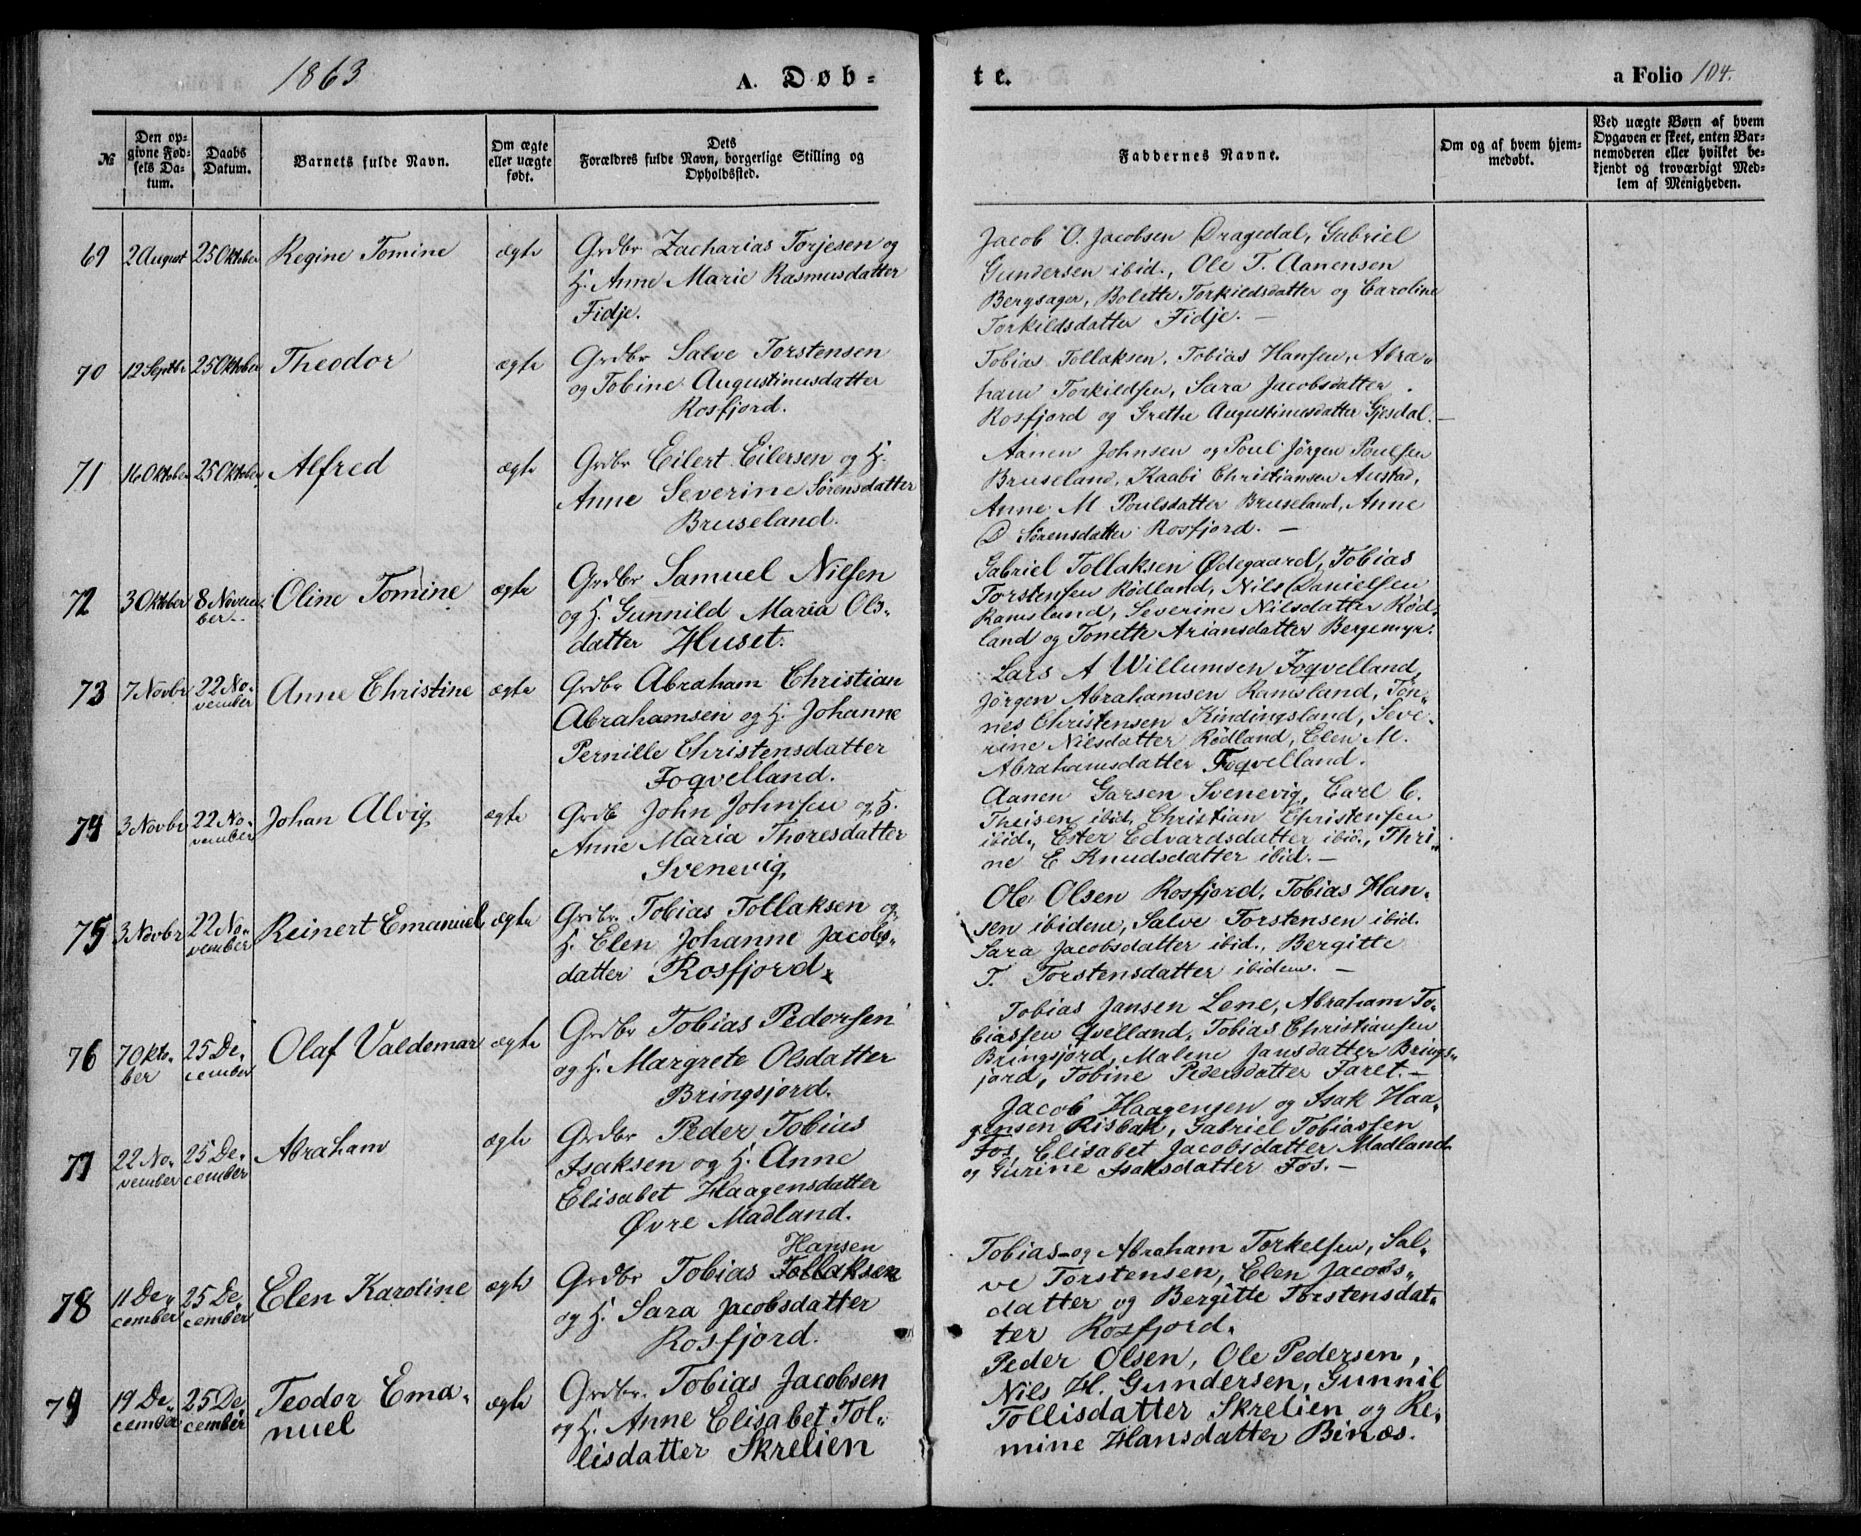 1863
A. Døb-
te.
a Folio 104.
№
Den op-
givne Fød-
sels Da-
tum.
Daabs
Datum.
Barnets fulde Navn.
Om ægte
eller uægte
født.
Dets
Forældres fulde Navn, borgerlige Stilling og
Opholdssted.
Faddernes Navne.
Om og af hvem hjem-
medøbt.
Ved uægte Børn af hvem
Opgaven er skeet, enten Bar-
nemoderen eller hvilket be-
kjendt og troværdigt Med-
lem af Menigheden.
69 2 August 25 Oktober Regine Tomine ægte
Grdbr Zacharias Torjesen og
H. Anne Marie Rasmusdatter
Fidje.
Jacob O. Jacobsen Dragedal, Gabriel
Gundersen ibid., Ole T. Aanensen
Bergsager, Bolette Torkildsdatter og Caroline
Torkildsdatter Fidje. —
70 12 Septbr 25 Oktober Theodor ægte
Grdbr Salve Torstensen
og Tobine Augustinusdatter
Rosfjord.
Tobias Tollaksen, Tobias Hansen, Abra-
ham Torkildsen, Sara Jacobsdatter
Rosfjord og Grethe Augustinusdatter Gjesdal. —
71 16 Oktober 25 Oktober Alfred ægte
Grdbr Eilert Eilersen og H.
Anne Severine Sørensdatter
Bruseland.
Aanen Johnsen og Poul Jörgen Poulsen
Bruseland, Kaabi Christiansen Austad,
Anne M Poulsdatter Bruseland, Anne
D Sörensdatter Rosfjord. —
72 3 Oktober 8 Novem-
ber Oline Tomine ægte
Grdbr Samuel Nilsen
og H. Gunnild Maria Ols-
datter Huset.
Gabriel Tollaksen Ødegaard, Tobias
Torstensen Rødland, Nils Danielsen
Ramsland, Severine Nilsdatter Rød-
land og Tonette Ariansdatter Bergemyr.
73 7 Novbr 22 No-
vember Anne Christine ægte
Grdbr Abraham Christian
Abrahamsen og H. Johanne
Pernille Christensdatter
Foqvelland.
Lars A Willumsen Foqvelland,
Jörgen Abrahamsen Ramsland, Tön-
nes Christensen Kindingsland, Seve-
rine Nilsdatter Rødland, Elen M.
Abrahamsdatter Foqvelland.
74 3 Novbr 22 No-
vember Johan Alvig ægte
Grdb John Johnsen og H.
Anne Maria Thoresdatter
Svenevig,
Aanen Garsen Svenevig, Carl C.
Theisen ibid, Christian Christensen
ibid., Ester Edvardsdatter ibid., Thri-
ne E Knudsdatter ibid. —
75 3 Novbr 22 No-
vember Reinert Emanuel ægte
Grdbr. Tobias Tollaksen og
H. Elen Johanne Jacobs-
datter Rosfjord.
Ole Olsen Rosfjord, Tobias Han-
sen ibidem, Salve Torstensen ibid.
Sara Jacobsdatter ibid., Bergitte
T. Torstensdatter ibidem. —
76 7 Okto-
ber 25 De-
cember Olaf Valdemar ægte
Grdbr Tobias Pedersen
og H. Margrete Olsdatter
Bringsjord.
Tobias Jansen Lene, Abraham To-
biassen Qvelland, Tobias Christiansen
Bringsjord, Malene Jansdatter Brings-
jord, Tobine Pedersdatter Faret. —
77 22 No-
vember 25 De-
cember Abraham ægte
Grdbr Peder Tobias
Isaksen og H. Anne
Elisabet Haagensdatter
Øvre Madland.
Jacob Haagensen og Isak Haa-
gensen Risbak, Gabriel Tobiassen
Fos, Elisabet Jacobsdatter Madland
og Gurine Isaksdatter Fos. —
78 11 De-
cember 25 De-
cember Elen Karoline ægte
Hansen
Grdbr Tobias Tollaksen
og H. Sara Jacobsdatter
Rosfjord.
Tobias og Abraham Torkelsen, Sal-
ve Torstensen, Elen Jacobs-
datter og Bergitte Torstensdat-
ter Rosfjord.
79 19 De-
cember 25 De-
cember Teodor Ema-
nuel ægte
Grdbr. Tobias Jacobsen
og H. Anne Elisabet Tol-
lisdatter Skrelien
Peder Olsen, Ole Pedersen,
Nils H. Gundersen, Gunnil
Tollisdatter Skrelien og Re-
mine Hansdatter Binæs.